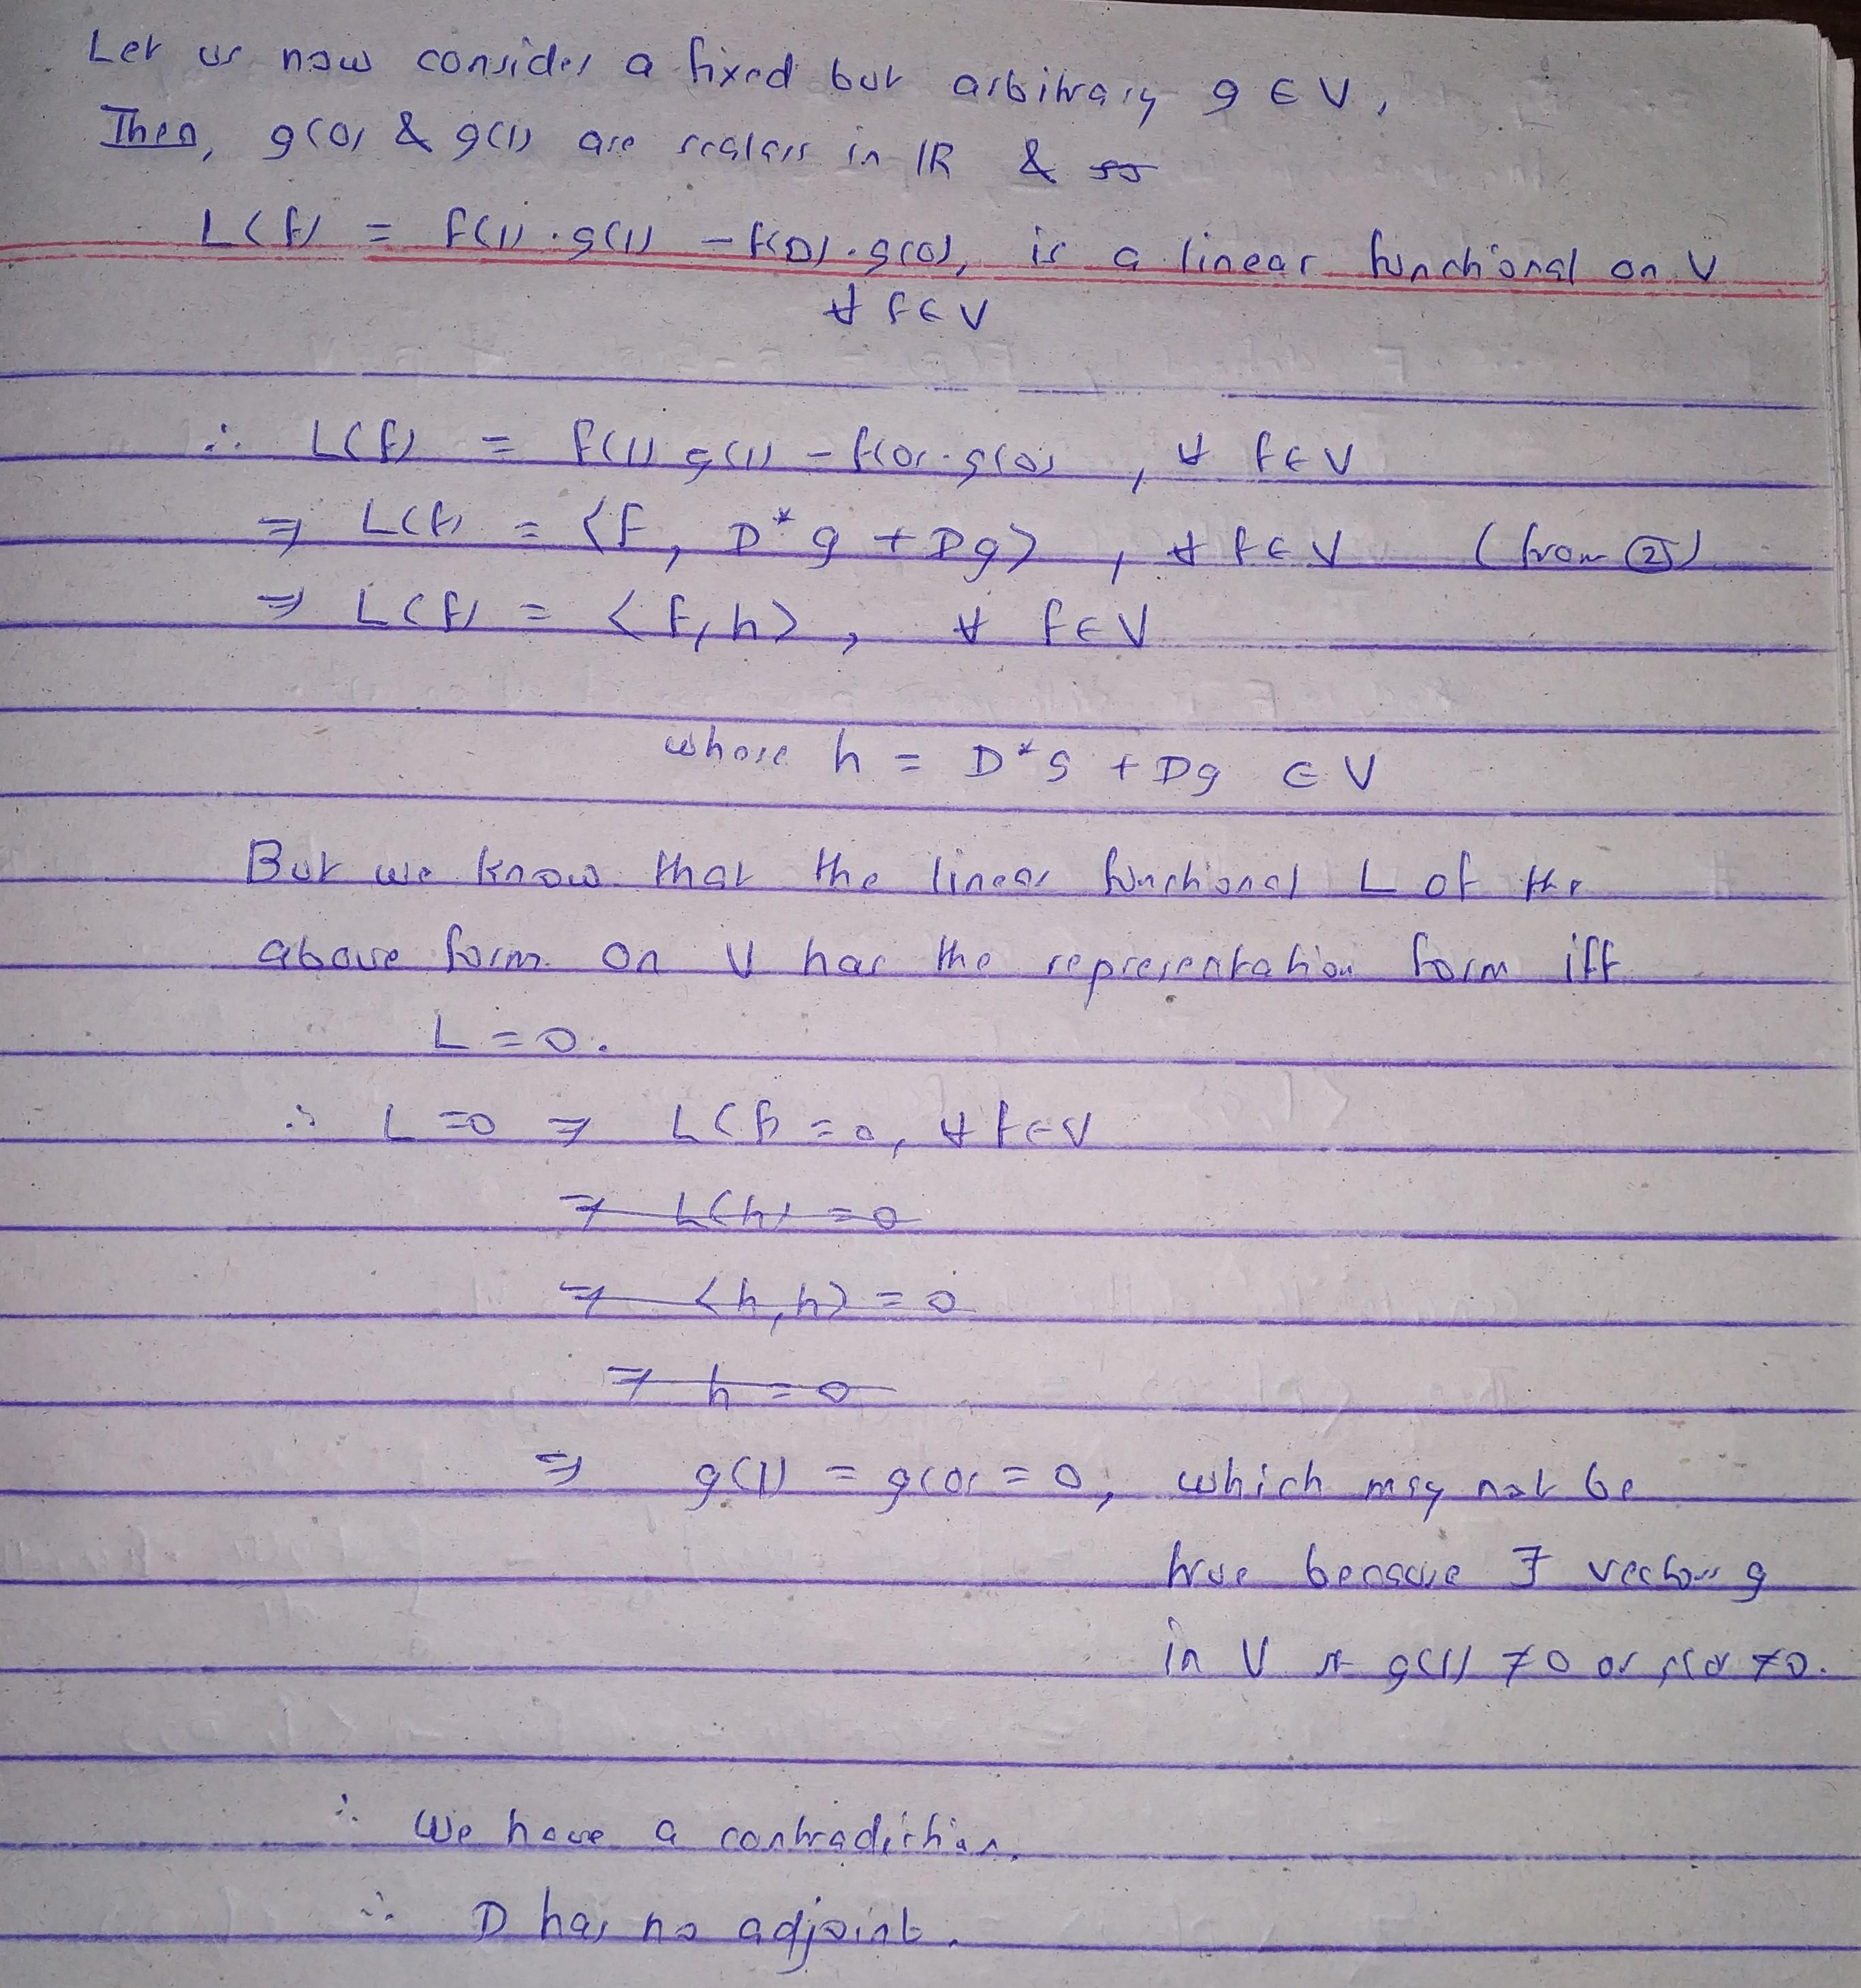 Let us now consider a fixed but arbitrary g ∈ V,
Then, g(0) & g(1) are scalars in IR &
L(f) = f(1)·g(1) - f(0)·g(0), is a linear functional on V
∀ f ∈ V
∴ L(f) = f(1) g(1) - f(0)·g(0) , ∀ f ∈ V
⇒ L(f) = <f, D*g + Dg> , ∀ f ∈ V (from ②)
⇒ L(f) = <f, h> , ∀ f ∈ V
where h = D*g + Dg ∈ V
But we know that the linear functional L of the
above form on V has the representation form iff
L = 0.
∴ L = 0 ⇒ L(f) = 0, ∀ f ∈ V
⇒ L(h) = 0
⇒ <h, h> = 0
⇒ h = 0
⇒ g(1) = g(0) = 0, which may not be
true because ∃ vectors g
in V st g(1) ≠ 0 or g(0) ≠ 0.
∴ We have a contradiction.
∴ D has no adjoint.